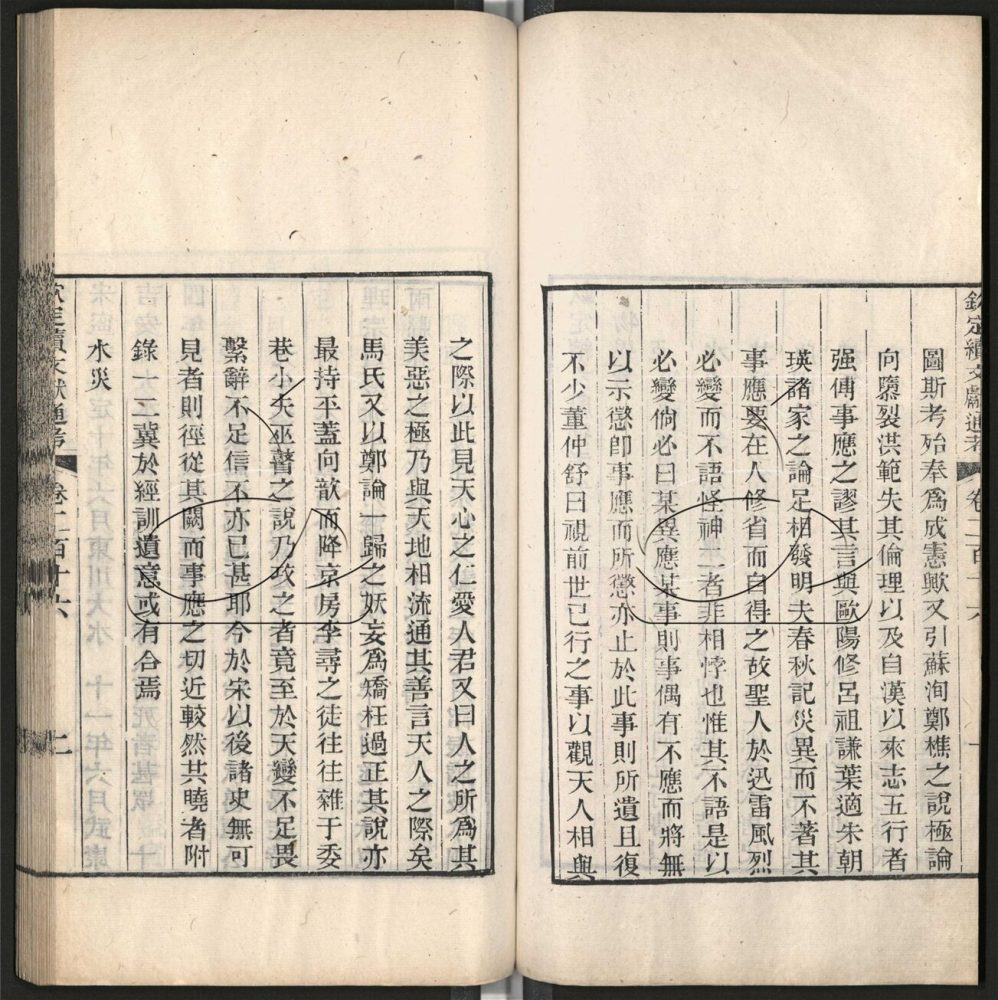 欽定續文獻通考 卷二百十六
圖斯考殆奉爲成憲歟又引蘇洵鄭樵之說極論
向隳裂洪範失其倫理以及自漢以來志五行者
强傅事應之謬其言與歐陽修呂祖謙葉適朱朝
瑛諸家之論足相發明夫春秋記災異而不著其
事應要在人修省而自得之故聖人於迅雷風烈
必變而不語怪神二者非相悖也惟其不語是以
必變倘必曰某異應某事則事偶有不應而將無
以示懲卽事應而所懲亦止於此事則所遺且復
不少董仲舒曰視前世已行之事以觀天人相與
之際以此見天心之仁愛人君又曰人之所爲其
美惡之極乃與天地相流通其善言天人之際矣
馬氏又以鄭論一歸之妖妄爲矯枉過正其說亦
最持平蓋向歆而降京房李尋之徒往往雜于委
巷小夫巫瞽之說乃攻之者竟至於天變不足畏
繫辭不足信不亦已甚耶今於宋以後諸史無可
見者則徑從其闕而事應之切近較然共曉者附
錄一二冀於經訓遺意或有合焉
水災
欽定續文獻通考 卷二百十六